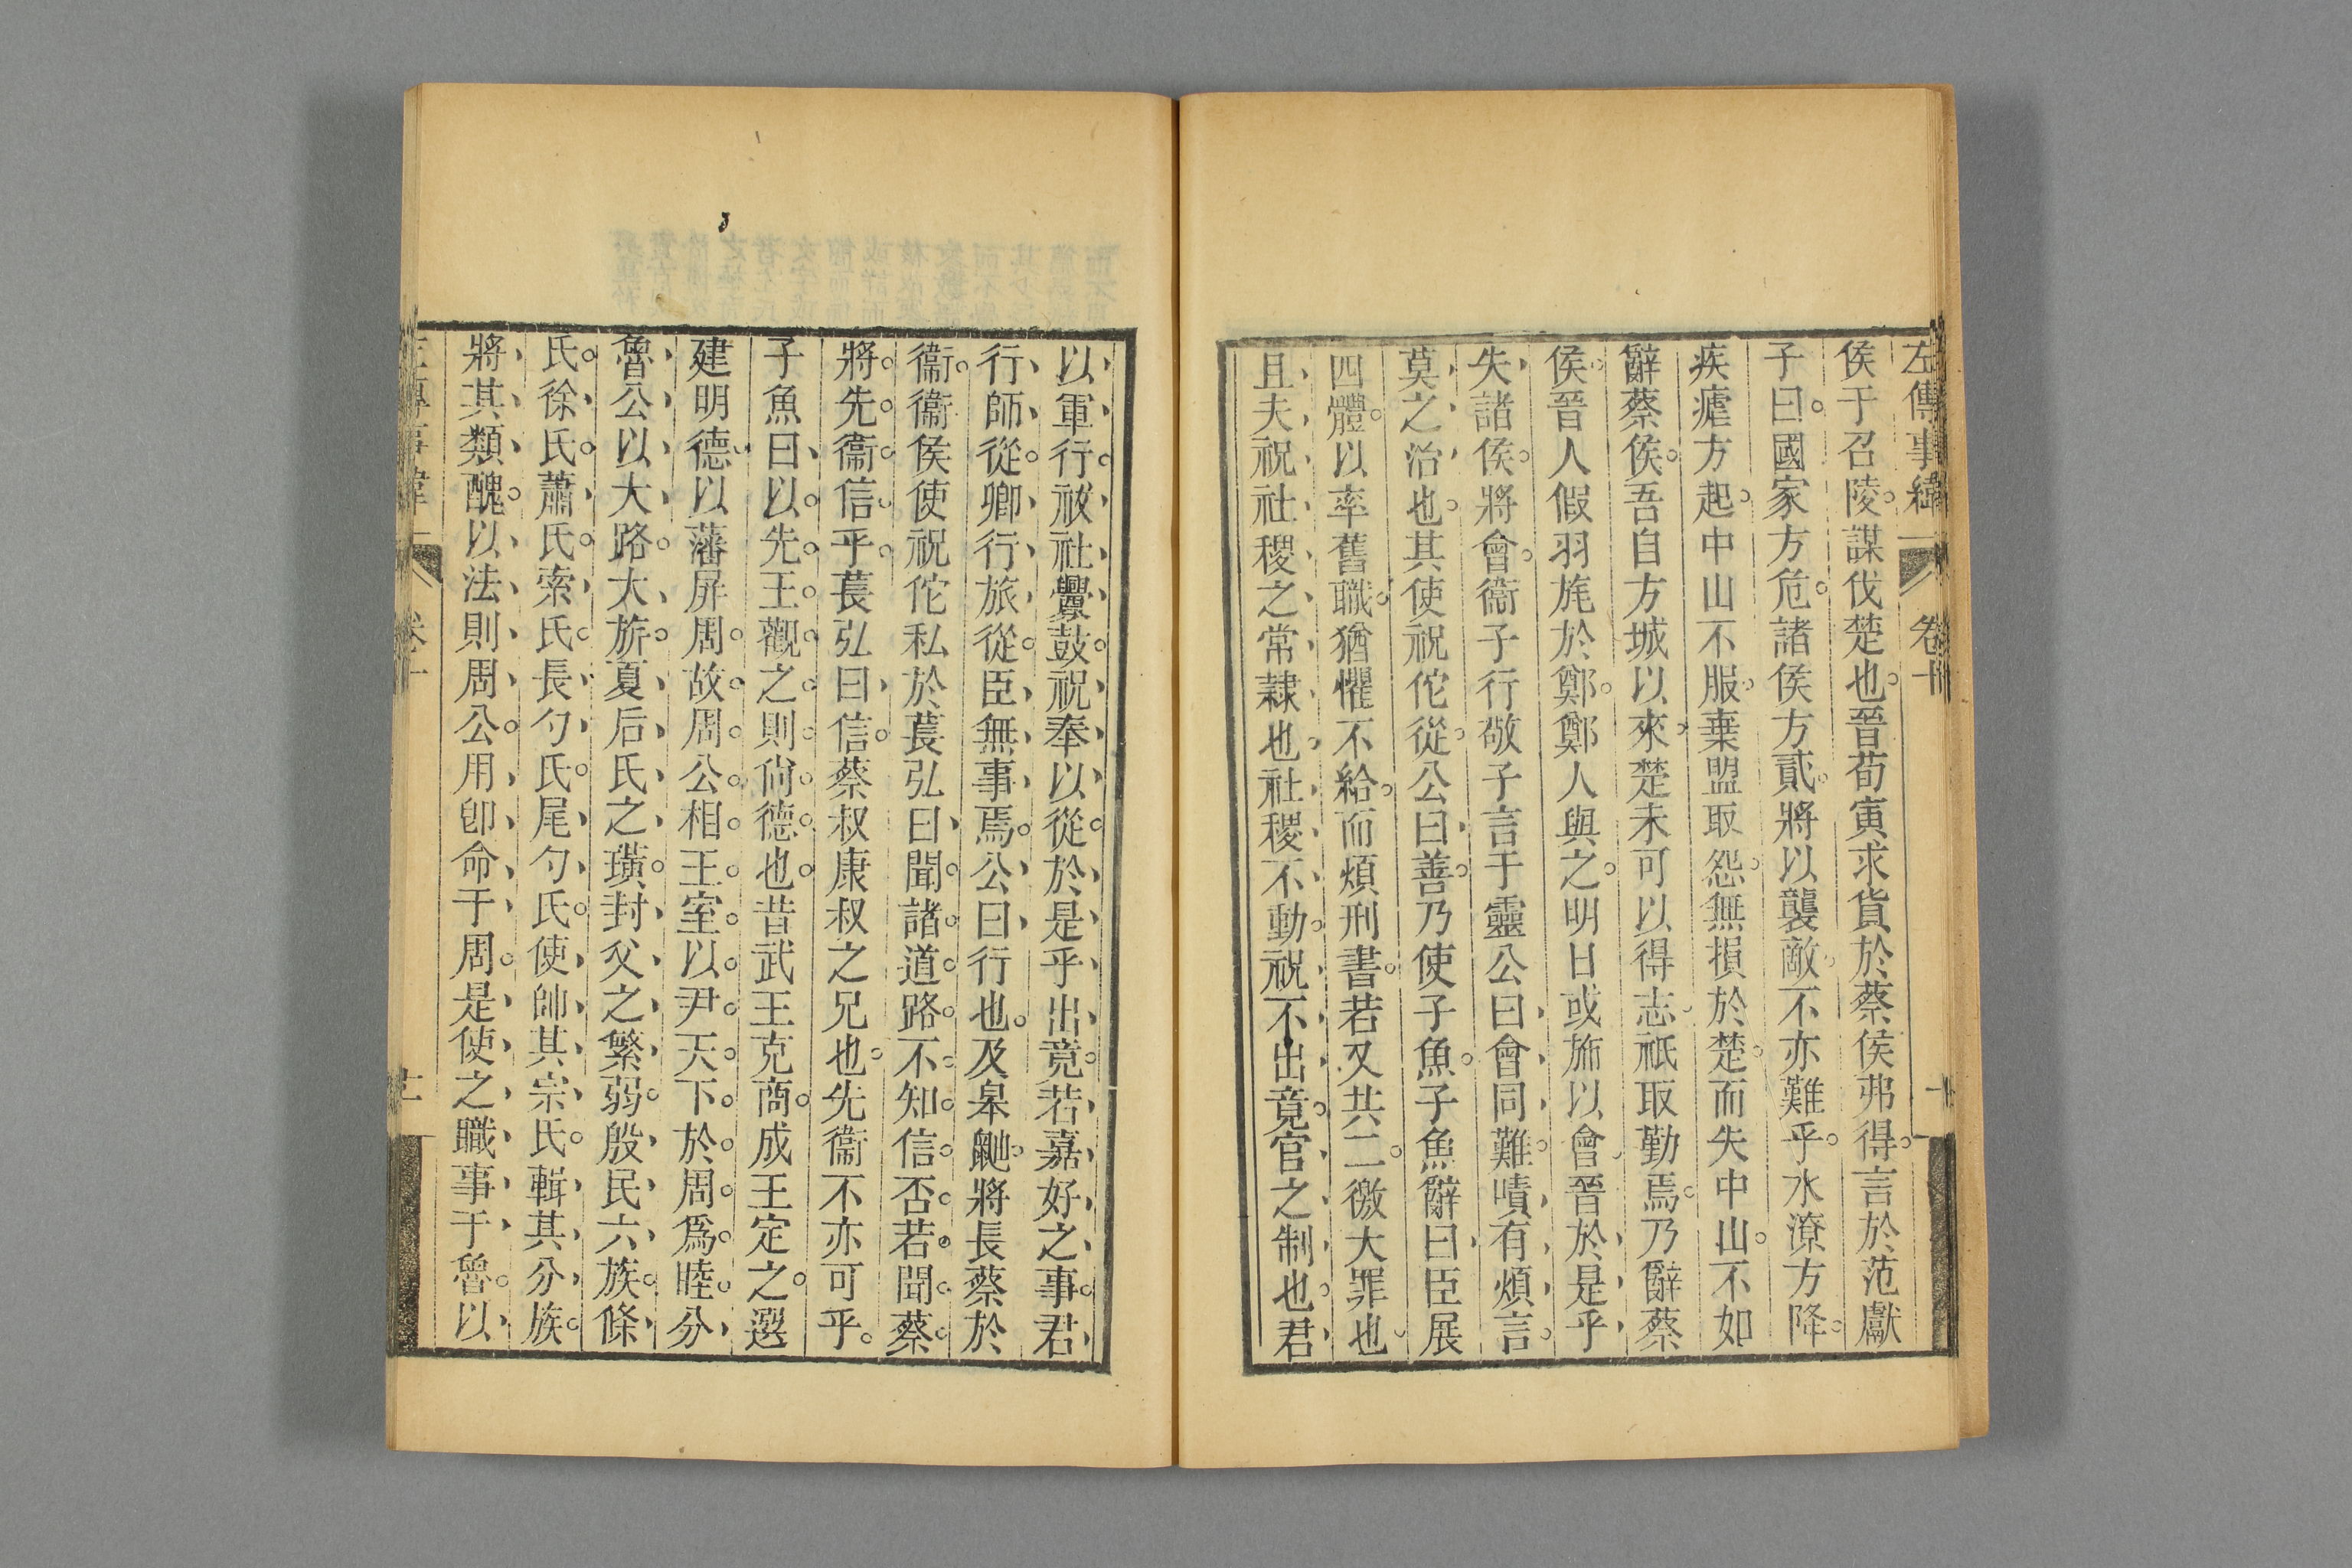 左傳事緯
卷十
侯于召陵謀伐楚也晉荀寅求貨於蔡侯弗得言於范獻
子曰國家方危諸侯方貳將以襲敵不亦難乎水潦方降
疾瘧方起中山不服棄盟取怨無損於楚而失中山不如
辭蔡侯吾自方城以來楚未可以得志祇取勤焉乃辭蔡
侯晉人假羽旄於鄭鄭人與之明日或旆以會晉於是乎
失諸侯將會衞子行敬子言于靈公曰會同難嘖有煩言
莫之治也其使祝佗從公曰善乃使子魚子魚辭曰臣展
四體以率舊職猶懼不給而煩刑書若又共二徼大罪也
且夫祝社稷之常隸也社稷不動祝不出竟官之制也君
以軍行祓社釁鼓祝奉以從於是乎出竟若嘉好之事君
行師從卿行旅從臣無事焉公曰行也及皋鼬將長蔡於
衞衞侯使祝佗私於萇弘曰聞諸道路不知信否若聞蔡
將先衞信乎萇弘曰信蔡叔康叔之兄也先衞不亦可乎
子魚曰以先王觀之則尙德也昔武王克商成王定之選
建明德以藩屏周故周公相王室以尹天下於周爲睦分
魯公以大路大旂夏后氏之璜封父之繁弱殷民六族條
氏徐氏蕭氏索氏長勺氏尾勺氏使帥其宗氏輯其分族
將其類醜以法則周公用卽命于周是使之職事于魯以